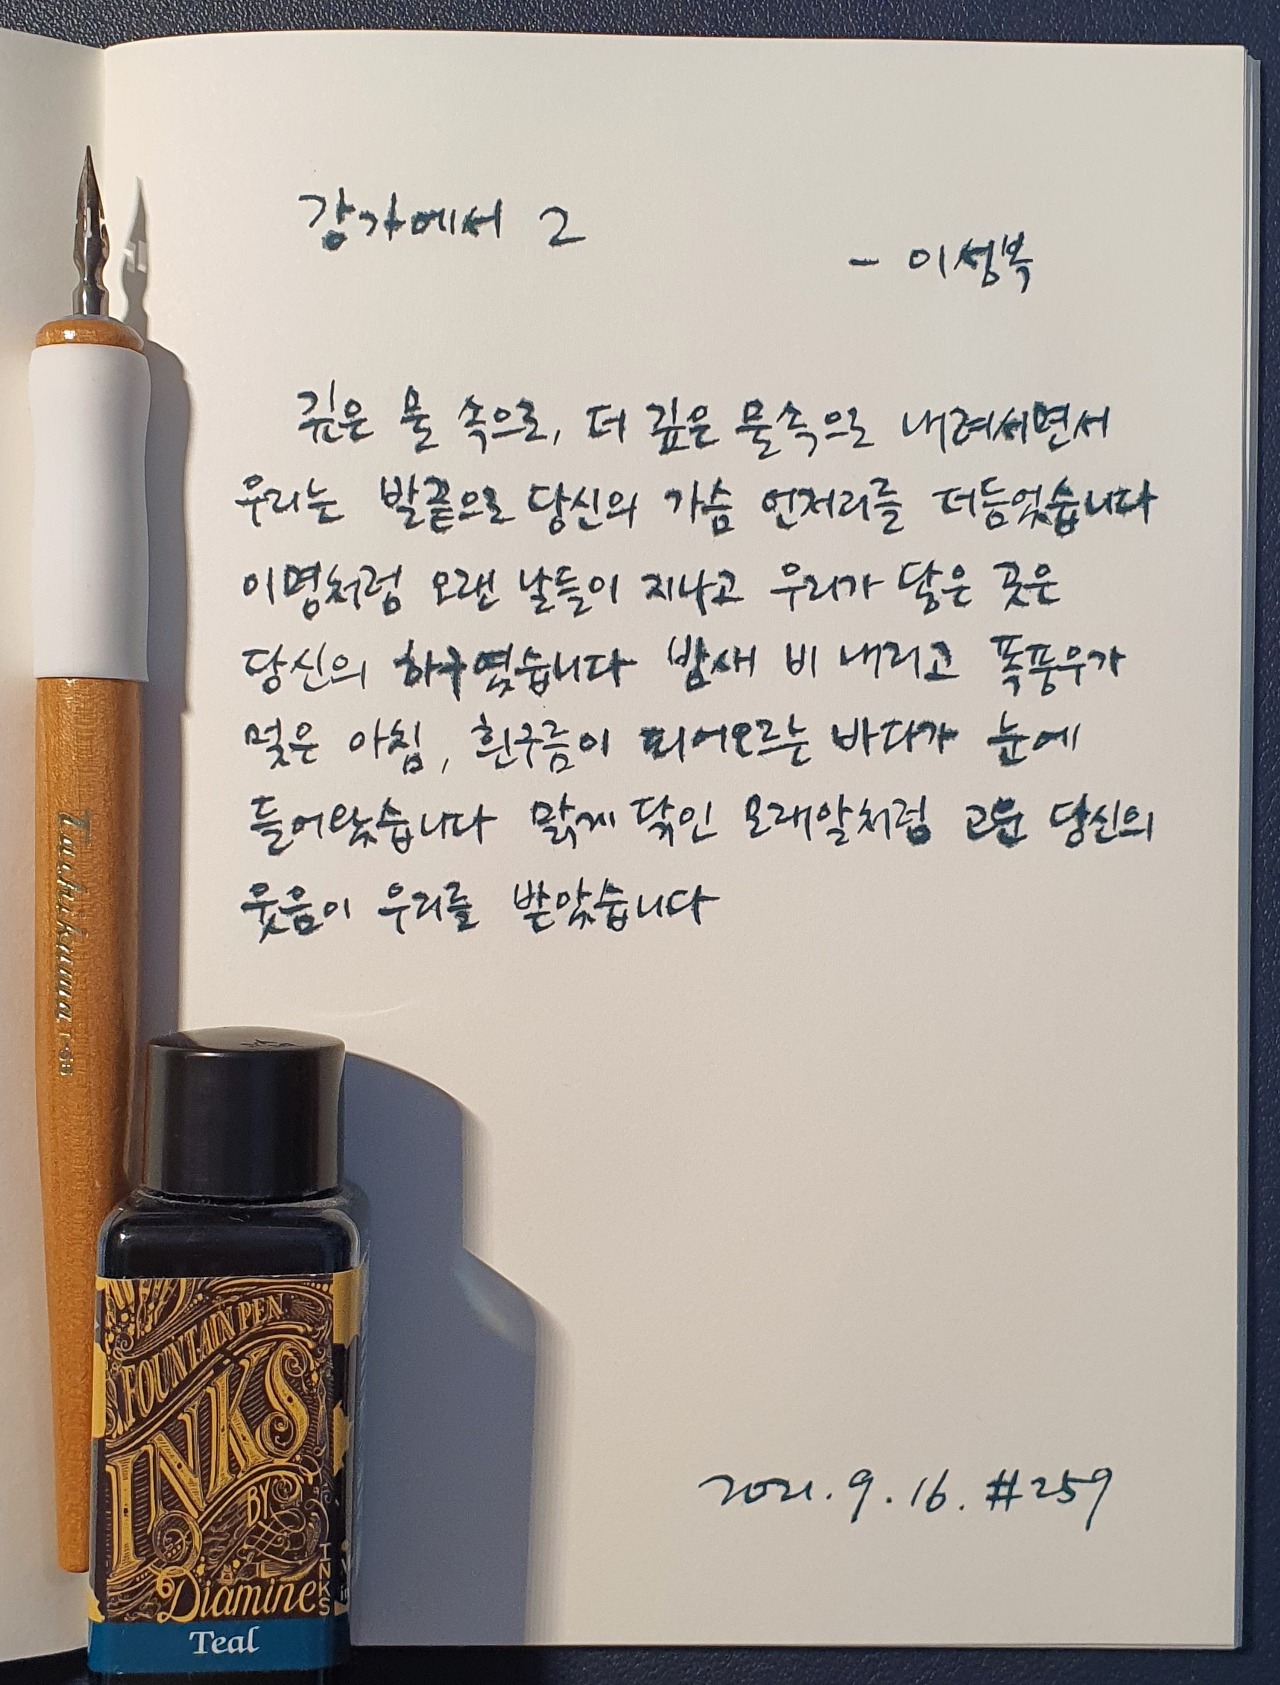 강가에서 2
- 이성복
깊은 물 속으로, 더 깊은 물속으로 내려서면서
우리는 발끝으로 당신의 가슴 언저리를 더듬었습니다
이명처럼 오랜 날들이 지나고 우리가 닿은 곳은
당신의 하구였습니다 밤새 비 내리고 폭풍우가
멎은 아침, 흰구름이 피어오르는 바다가 눈에
들어왔습니다 맑게 닦인 모래알처럼 고운 당신의
웃음이 우리를 받았습니다
2021. 9. 16. #259
Tachikawa T-
FOUNTAIN PEN
INKS
BY
Diamine
INKS
Teal